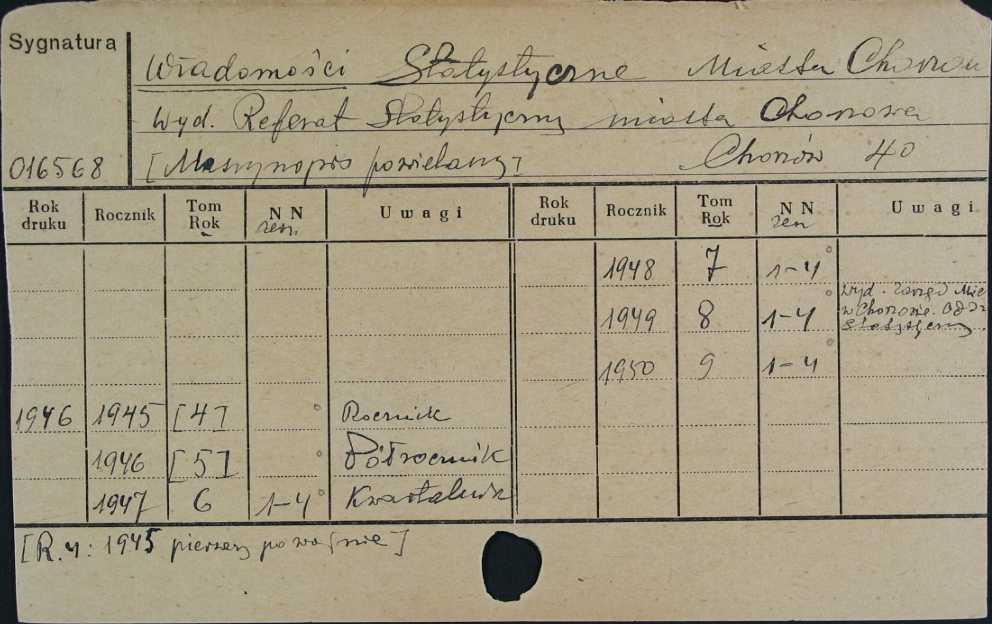 Sygnatura
Wiadomości Statystyczne Miasta Chorzowa
Wyd. Referat Statystyczny miasta Chorzowa
016568 [Maszynopis powielany] Chorzów 40
Rok druku Rocznik Tom Rok NN zesz. Uwagi Rok druku Rocznik Tom Rok NN zesz. Uwagi
1948 7 1-4
1949 8 1-4 Wyd. Zarząd Mie w Chorzowie. Oddz Statystyczny
1950 9 1-4
1946 1945 [4] Rocznik
1946 [5] Półrocznik
1947 6 1-4 Kwartalnik
[R. 4: 1945 pierwszy po wojnie]